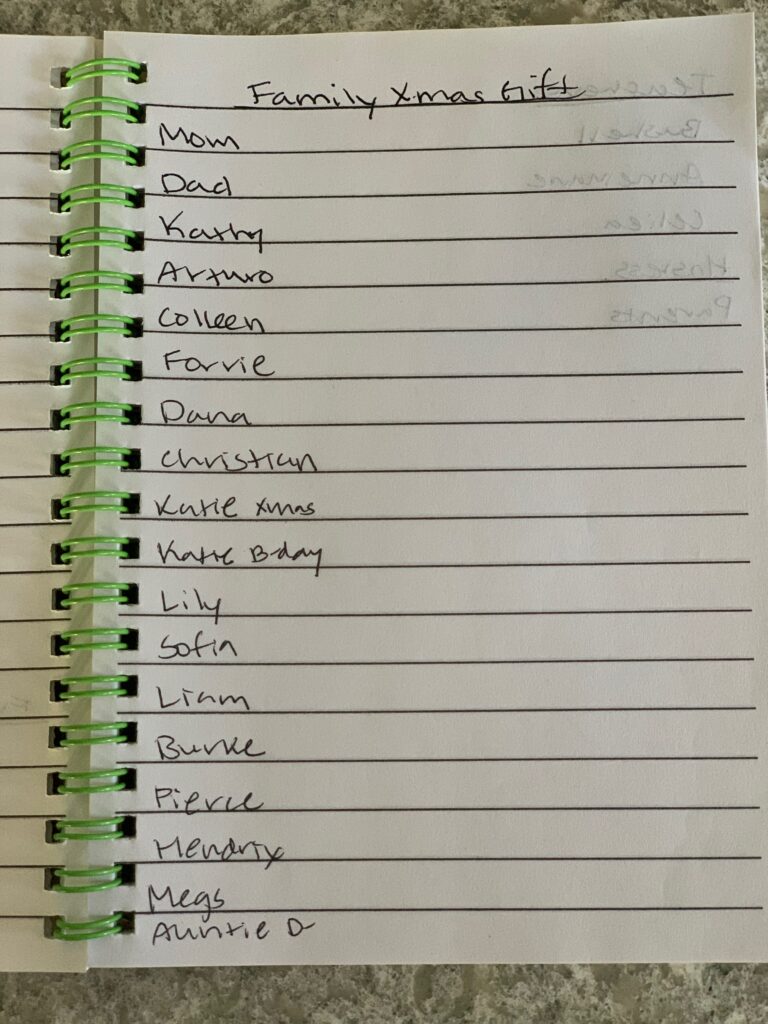 Family Xmas Gift
Mom
Dad
Kathy
Arturo
Colleen
Forrie
Dana
Christian
Katie Xmas
Katie B-day
Lily
Sofia
Liam
Burke
Pierce
Hendrix
Megs
Auntie D